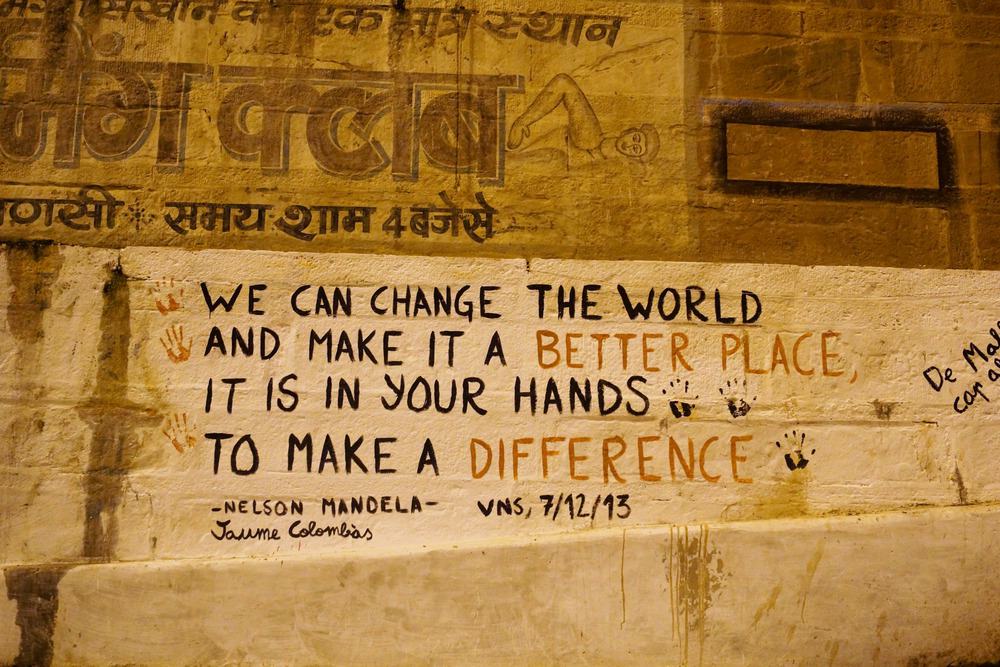 एक मात्र स्थान
क्लब
समय शाम 4 बजे से
WE CAN CHANGE THE WORLD
AND MAKE IT A BETTER PLACE,
IT IS IN YOUR HANDS
TO MAKE A DIFFERENCE
-NELSON MANDELA- VNS, 7/12/13
Jaume Colombàs
De Mal